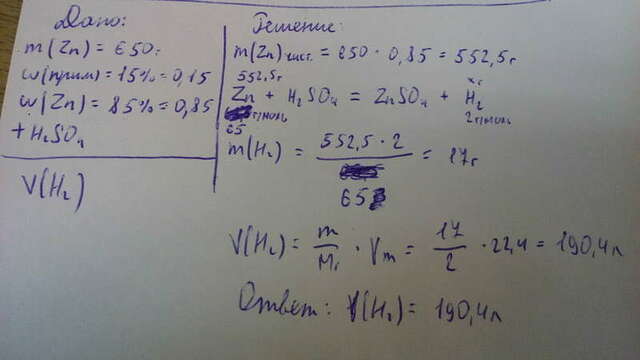 Дано:
m(Zn) = 650г
w(прим) = 15% = 0,15
w(Zn) = 85% = 0,85
+ H₂SO₄
V(H₂)
Решение:
m(Zn)чист. = 650 · 0,85 = 552,5г
552,5г xг
Zn + H₂SO₄ = ZnSO₄ + H₂
г/моль 2г/моль
65
m(H₂) = 552,5 · 2 / 65 = 17г
V(H₂) = m/Mr · Vm = 17/2 · 22,4 = 190,4л
Ответ: V(H₂) = 190,4л